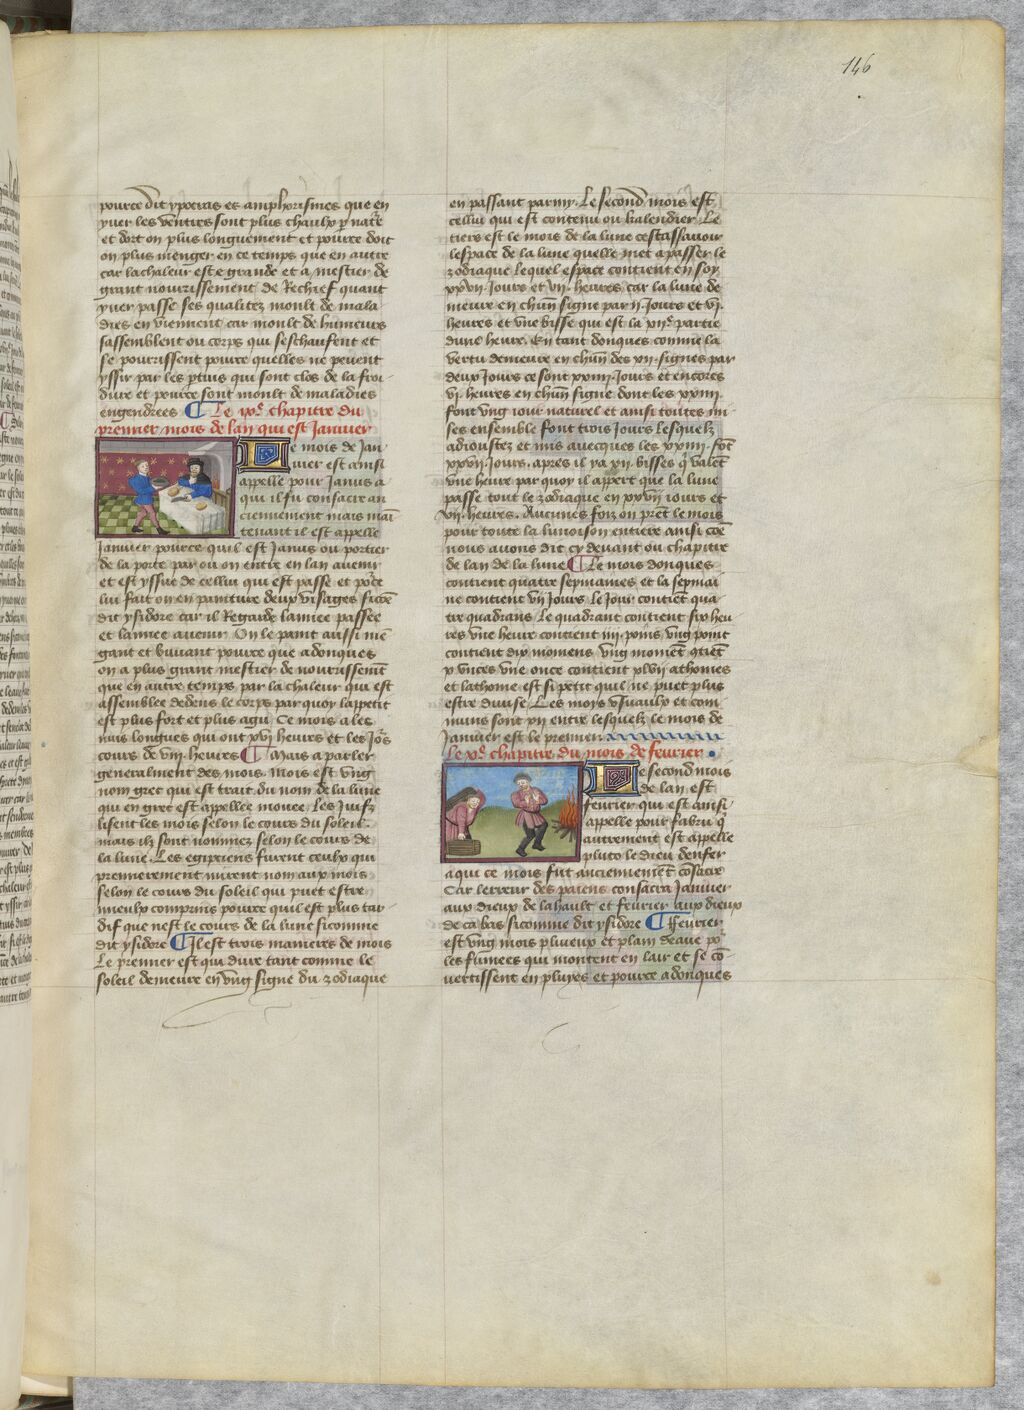 146
pource dit ypocras es amphorismes que en
yuer les ventres sont plus chaulx p natẽ
et dort on plus longuement et pource doit
on plus menger en ce temps que en autre
car la chaleur est grande et a mestier de
grant nourrissement De Rechief quant
yuer passe ses qualitez moult de mala
dies en viennent car moult de humeurs
sassemblent ou corps qui seschaufent et
se pourrissent pource quelles ne peuent
yssir par les ptuis qui sont clos de la froi
dure et pource sont moult de maladies
engendrees ¶ Le chapitre du
premier mois de lan qui est Januier
Le mois de Jan
uier est ainsi
appelle pour Janus a
qui il fu consacre an
ciennement mais mai
tenant il est appelle
Januier pource quil est Janus ou portier
de la porte par ou on entre en lan auenir
et est yssue de cellui qui est passe et poce
lui fait on en painture deux visages sicõe
dit ysidore car il Regarde lannee passee
et lannee auenir On le paint aussi mẽ
gant et buuant pource que adonques
on a plus grant mestier de nourrissemẽt
que en autre temps par la chaleur qui est
assemblee dedens le corps par quoy lappetit
est plus fort et plus agu Ce mois a les
nuis longues qui ont xvi heures et les Jors
cours de viii heures ¶ Mais a parler
generalment des mois Mois est vng
nom grec qui est trait du nom de la lune
qui en grec est appellee Les Juifz
lisent les mois selon le cours du soleil
mais ilz sont nommez selon le cours de
la lune Les egipciens furent ceulx qui
premierement mirent nom aux mois
selon le cours du soleil qui puet estre
mieulx comprins pource quil est plus tar
dif que nest le cours de la lune sicomme
dit ysidore ¶ Il est trois manieres de mois
Le premier est qui dure tant comme le
soleil demeure en vng signe du zodiaque
en passant parmy. Le second mois est
cellui qui est contenu ou kalendier Le
tiers est le mois de la lune cestassauoir
lespace de la lune quelle met a passer le
zodiaque lequel espace contient en soy
xxvii Jours et vii heures car la lune de
meure en chũn signe par ii Jours et vi
heures et vne bisse qui est la xiie partie
dune heure. En tant donques comme la
vertu demeure en chũn des xii signes par
deux Jours ce sont xxiiii Jours et encores
vi heures en chũn signe dont les xxiiii
font vng iour naturel et ainsi toutes mi
ses ensemble font trois Jours lesquelz
adioustez et mis auecques les xxiiii fõt
xxvii Jours. apres il ya xii bisses q valẽt
vne heure par quoy il appert que la lune
passe tout le zodiaque en xxvii iours et
vii heures. Aucunes foiz on prẽt le mois
pour toute la lunoison entiere ainsi cõe
nous auons dit cy deuant ou chapitre
de lan de la lune ¶ Le mois donques
contient quatre sepmaines et la sepmai
ne contient vii Jours le Jour contiẽt qua
tre quadrans Le quadrant contient six heu
res vne heure contient iiii pois vng point
contient dix momens vng momẽt cõtiẽt
x vnces vne once contient xlvii athomes
et lathome est si petit quil ne puet plus
estre diuise Les moys vsuaulx et com
muns sont xii entre lesquelz le mois de
Januier est le premier
Le xe chapitre du mois de feurier
Le second mois
de lan est
feurier qui est ainsi
appelle pour q
autrement est appelle
pluto le dieu denfer
a qui ce mois fut anciennemẽt cõsacre
Car lerreur des paiens consacra Januier
aux dieux de la hault et feurier aux dieux
de ca bas sicomme dit ysidore ¶ ffeurier
est vng mois pluieux et plain deaue po
les fumees qui montent en lair et se cõ
uertissent en pluyes et pource adonques